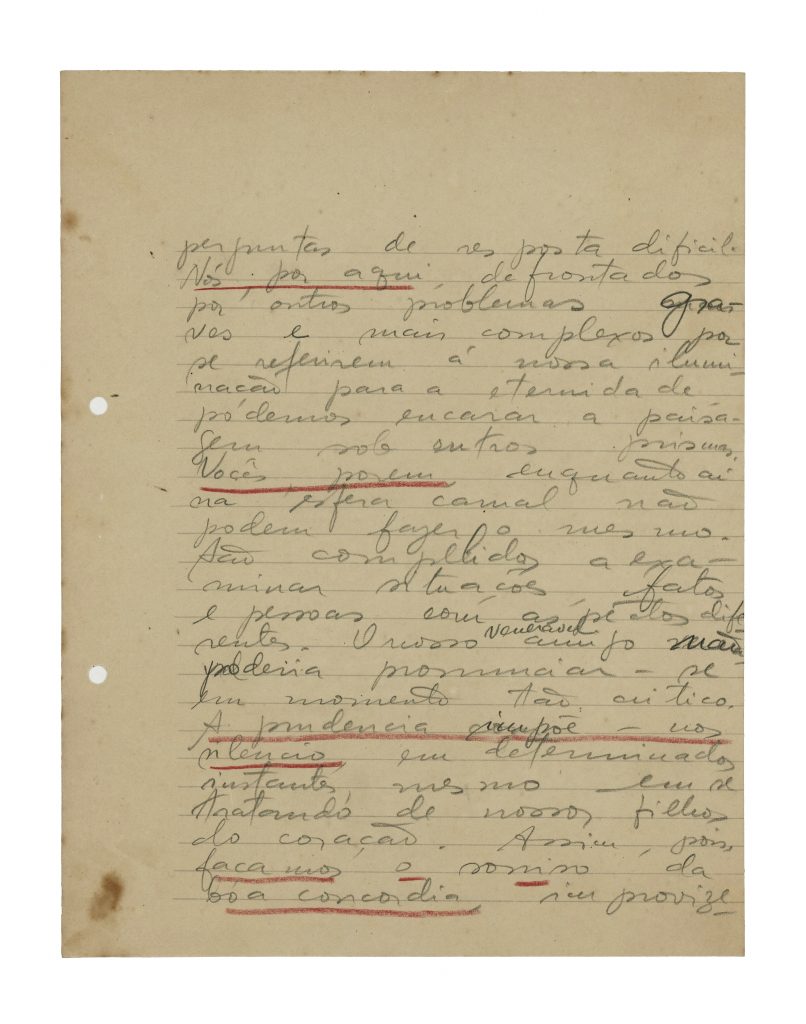 perguntas de resposta dificil.
Nós, por aqui, defrontados
por outros problemas gra-
ves e mais complexos por
se referirem á nossa ilumi-
nação para a eternidade
pódemos encarar a paisa-
gem sob outros prismas.
Vocês, porem, enquanto aí
na esfera carnal não
podem fazer o mesmo.
São compelidos a exa-
minar situações, fatos
e pessoas com aspétos dife-
rentes. O nosso veneravel amigo não
poderia pronunciar-se
em momento tão critico.
A prudencia impõe-nos
silencio, em determinados
instantes, mesmo em se
tratando de nossos filhos
do coração. Assim, pois,
façamos o sorriso da
bôa concordia improvize-